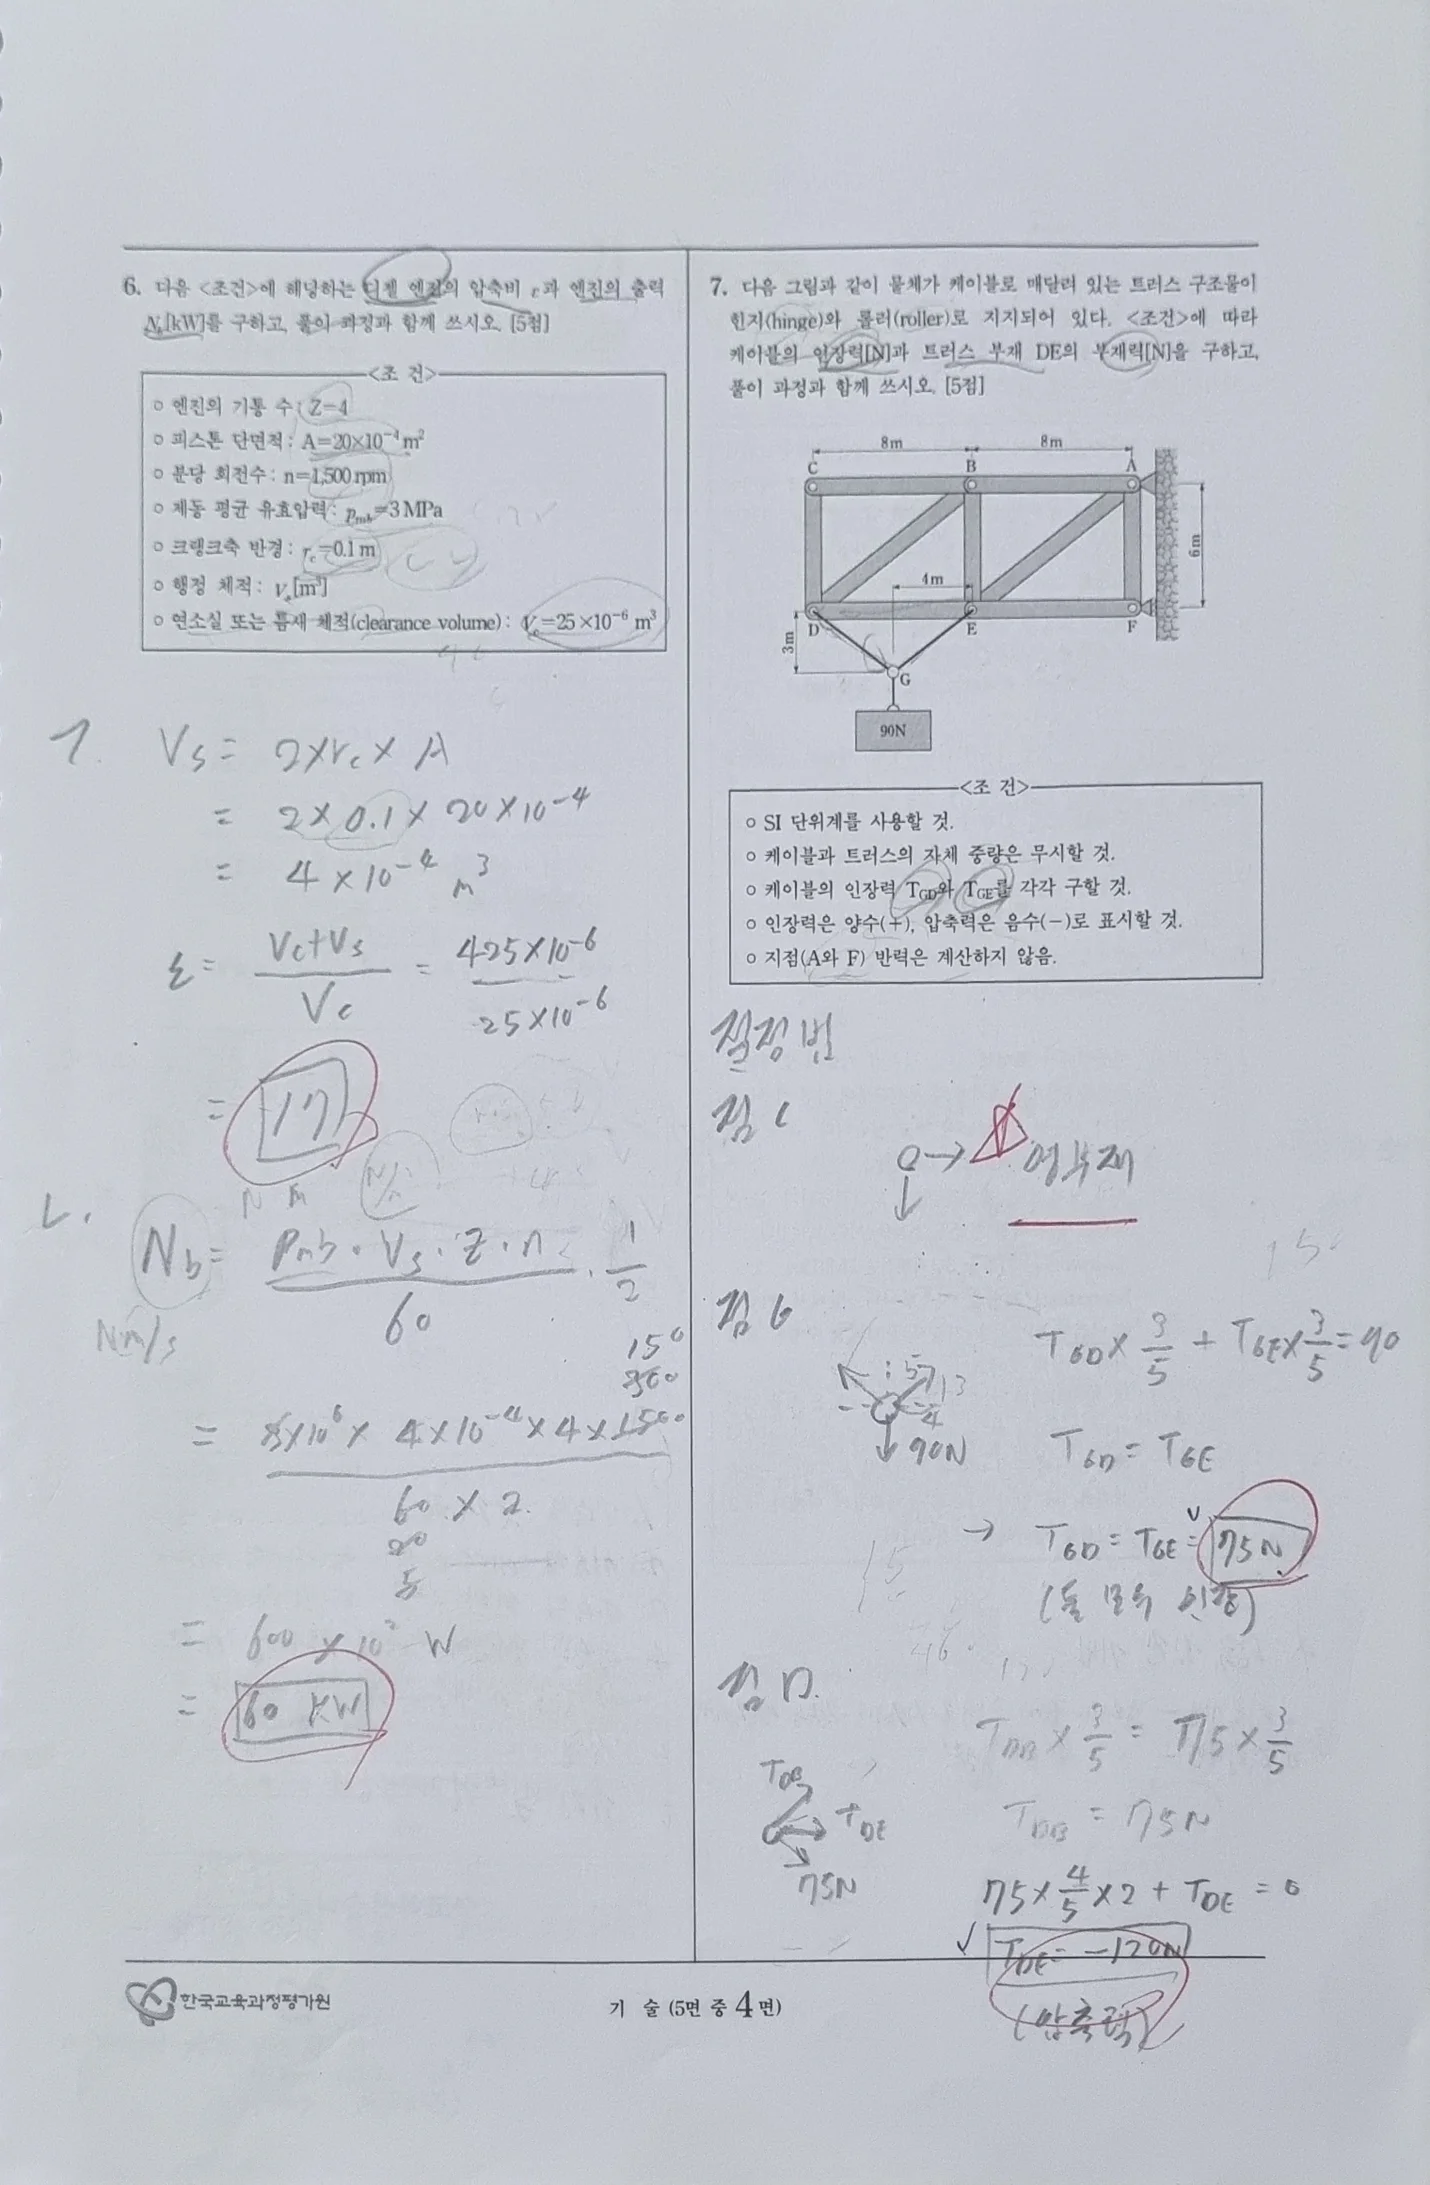 6. 다음 <조건>에 해당하는 디젤 엔진의 압축비 ε과 엔진의 출력
N_b[kW]를 구하고, 풀이 과정과 함께 쓰시오. [5점]
<조 건>
○ 엔진의 기통 수: Z=4
○ 피스톤 단면적: A=20×10⁻⁴ m²
○ 분당 회전수: n=1,500 rpm
○ 제동 평균 유효압력: p_mb=3 MPa
○ 크랭크축 반경: r_c=0.1 m
○ 행정 체적: V_s[m³]
○ 연소실 또는 틈새 체적(clearance volume): V_c=25×10⁻⁶ m³
1. V_s = 2×r_c×A
= 2×0.1×20×10⁻⁴
= 4×10⁻⁴ m³
ε = (V_c+V_s)/V_c = 425×10⁻⁶/25×10⁻⁶
= 17
N m
N_b = (P_mb·V_s·Z·n)/60 · 1/2
Nm/s
150
= 3×10⁶×4×10⁻⁴×4×1500
60×2
20
5
= 600×10² W
= 60 kW
7. 다음 그림과 같이 물체가 케이블로 매달려 있는 트러스 구조물이
힌지(hinge)와 롤러(roller)로 지지되어 있다. <조건>에 따라
케이블의 인장력[N]과 트러스 부재 DE의 부재력[N]을 구하고,
풀이 과정과 함께 쓰시오. [5점]
8m 8m
C B A
6m
4m
D E F
3m
G
90N
<조 건>
○ SI 단위계를 사용할 것.
○ 케이블과 트러스의 자체 중량은 무시할 것.
○ 케이블의 인장력 T_GD와 T_GE를 각각 구할 것.
○ 인장력은 양수(+), 압축력은 음수(−)로 표시할 것.
○ 지점(A와 F) 반력은 계산하지 않음.
절점법
점 C
영부재
점 G
T_GD×3/5 + T_GE×3/5 = 90
5 3
4
90N
T_GD = T_GE
→ T_GD = T_GE = 75N
(둘 모두 인장)
점 D.
T_DB×3/5 = 75×3/5
T_DB
T_DE
75N
T_DB = 75N
75×4/5×2 + T_DE = 0
T_DE = −120N
(압축력)
한국교육과정평가원
기 술 (5면 중 4 면)